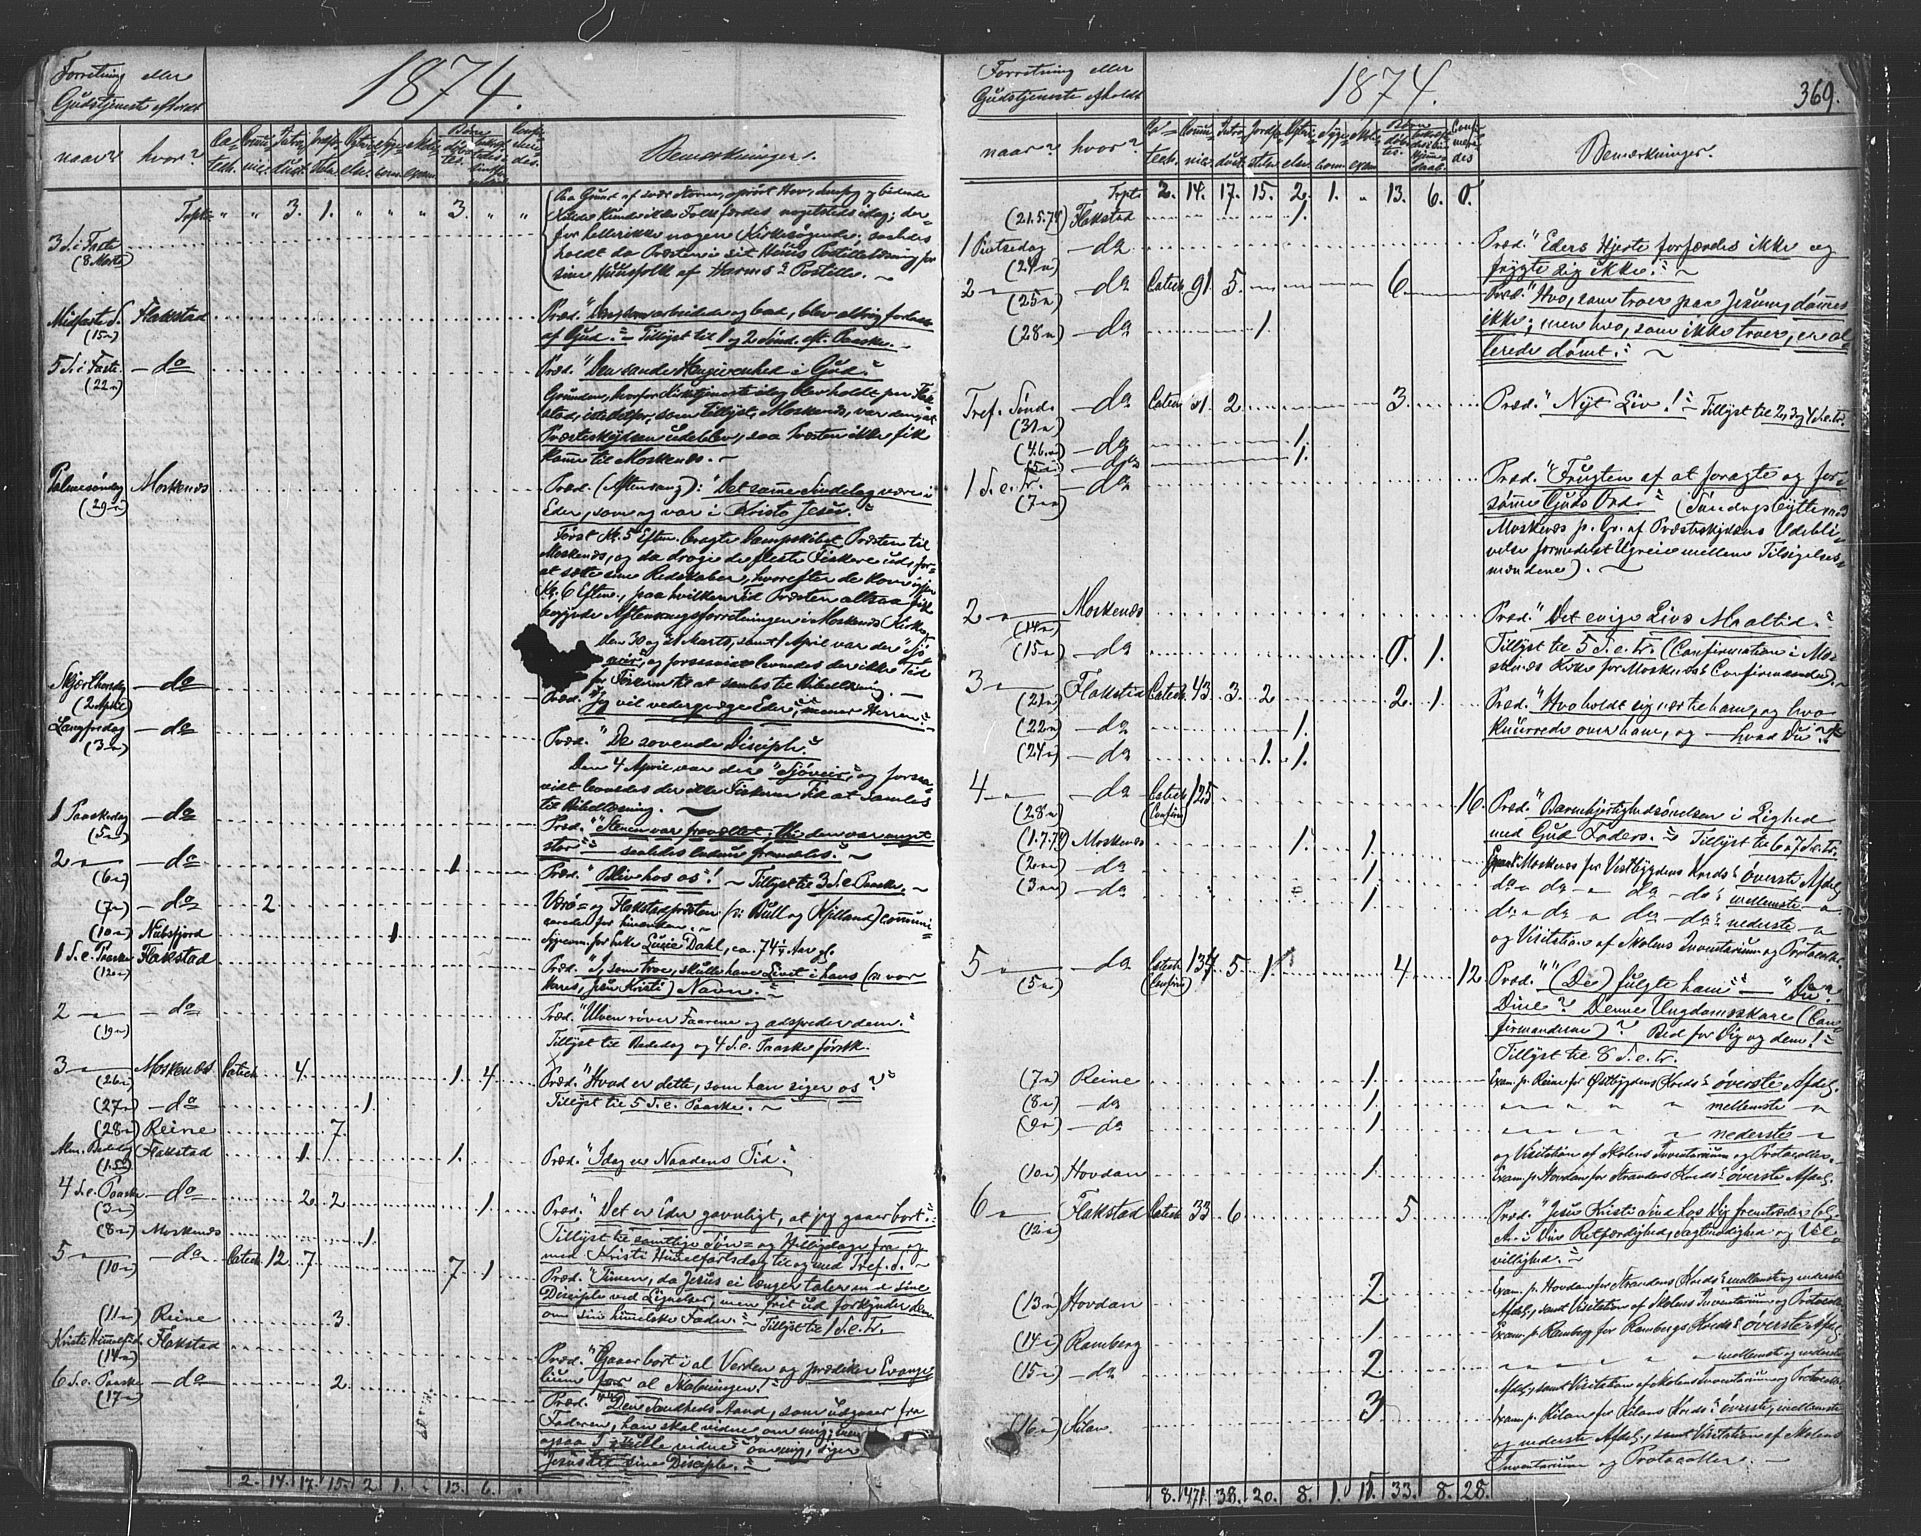 Forretning eller
Gudstjeneste afholdt
1874.
naar? hvor? Bemærkninger.
Trpt " " 3. 1. " " " 3. " "
Paa Grund af svær
Kilde kunde ikke Folk færdes nogetsteds idag; der-
for heller ikke nogen Kirkesøgende; saaledes
holdt da Præsten i sit Huus Postillelæsning for
sine Huusfolk af Harms's Postille. —
3 S. i Faste
(8 Marts)
Midfaste S. Flakstad
(15 〃)
Præd. "
af Gud." Tillyst til 1 og 2 Sønd. ef. Paaske.
5 S. i Faste — do
(22 〃)
Præd. "Den sande Hengivenhed i Gud."
Grunden, hvorfor Gudstjeneste idag blev holdt paa Flak-
stad, istedetfor, som tillyst, Moskenæs, var den, at
Præsteskydsen udeblev, saa Præsten ikke fik
komme til Moskenæs. —
Palmesøndag Moskenæs
(29 〃)
Præd. (Aftensang): "Det samme Sindelag være i
Eder, som og var i Christo Jesus."
Først Kl. 5 Efterm. bragte Dampskibet Præsten til
Moskenæs, og da droge de fleste Fiskere ud for
at sætte sine Redskaber, hvorefter de kom igjen
Kl. 6 Efterm., paa hvilken Tid Præsten altsaa fik
begynde Aftensangsforretningen i Moskenæs Kirke.
Den 30 og 31 Marts, samt 1 April var der "Sjø-
veir", og forsaavidt levnedes der ikke Tid
for Fiskerne til at samles til Bibellæsning. —
Skjærthorsdag — do
(2 April)
Præd. "Jeg vil vederqvæge Eder", mener Herren.
Langfredag — do
(3 〃)
Præd. "De sovende Disciple."
Den 4 April var der "Sjøveir", og forsaa-
vidt levnedes der ikke Fiskerne Tid at samles
til Bibellæsning. —
1 Paaskedag — do
(5 〃)
Præd. "Stenen var fravæltet; thi den var meget
stor" — saaledes lød
2 — — do 1.
(6 〃)
Præd. "Bliv hos os"! — Tillyst til 3 S. e. Paaske. —
(7 〃) — do 2
Værø- og Flakstadpræsten (: Bull og Kjelland) communi-
cerede for hinanden. —
(10 〃) Nubsfjord 1
Sygecom. for Enke Lucie Dahl, ca. 74½ Aar gl.
1 S. e. Paaske Flakstad
(12 〃)
Præd. "I, som troe, skulle have Livet i hans (: vor
Herres, Jesu Kristi) Navn."
2 — — do
(19 〃)
Præd. "Ulven røver Faarene og adspreder dem."
Tillyst til Bededag og 4 S. e. Paaske førstk.
3 — Moskenæs Catech. 4. 1. 4.
(26 〃)
Præd. "Hvad er dette, som han siger os?"
Tillyst til 5 S. e. Paaske. —
(27 〃) — do 1.
(28 〃) Reine 7.
Alm. Bededag Flakstad 1. 1.
(1. 5 〃)
Præd. "Idag er Naadens Tid."
4 S. e. Paaske — do 2. 2. 1.
(3 〃)
Præd. "Det er Eder gavnligt, at jeg gaaer bort".
Tillyst til samtlige Søn- og Helligdage fra og
med Kristi Himmelfartsdag til og med Tref. S. —
(8 〃) Moskenæs 1.
5 — — do Catech. 12. 7. 7. 1
(10 〃)
Præd. "Timen, da Jesus ei længer taler med sine
Disciple ved Lignelser, men frit ud forkynder dem
om sin himmelske Fader." — Tillyst til 1 S. e. Tr.
(11 〃) Reine 3.
Kristi Himmelfd. Flakstad
(14 〃)
Præd. "Gaaer bort i al Verden og prædiker Evange-
lium for al Skabningen!"
6 S. e. Paaske — do 2.
(17 〃)
Præd. "Den Sandheds Aand, som udgaaer fra
Faderen, han skal vidne om mig; men
ogsaa I skulle vidne om mig", siger
Jesus til sine Disciple. —
2. 14. 17. 15. 2. 1. - 13. 6. .
Forretning eller
Gudstjeneste afholdt
1874.
369.
naar? hvor? Bemærkninger.
Trpt 2. 14. 17. 15. 2. 1. " 13. 6. 0.
(21. 5. 74) Flakstad 1.
1 Pintsedag — do
(24 〃)
Præd. "Eders Hjerte forfærdes ikke og
frygte sig ikke." —
2 — — do Catech. 91. 5. 6.
(25 〃)
Præd. "Hvo, som troer paa Jesum, dømmes
ikke; men hvo, som ikke troer, er al-
lerede dømt." —
(28 〃) — do 1
Tref. Sønd. — do Catech. 2. 3.
(31 〃)
Præd. "Nyt Liv!" — Tillyst til 2, 3 og 4 S. e. Tr.
(4. 6. 〃) — do 1.
(5 〃) — do 1.
1 S. e. Tr. — do
(7 〃)
Præd. "Frugten af at foragte og for-
sømme Guds Ord." (Søndagsbytte med
Moskenæs p. Gr. af Præsteskydsens Udebli-
velse formedelst Ugreie mellem Tilsigelses-
mændene). —
2 — Moskenæs
(14 〃)
Præd. "Det evige Livs Maaltid."
(15 〃) — do 0. 1.
Tillyst til 5 S. e. Tr. (Confirmation i Mos-
kenæs Kirke for Moskenæs Confirmander). —
3 — Flakstad Catech. 43. 3. 2 2. 1.
(21 〃)
Præd. "Hvo holdt sig nær til ham, og hvo
knurrede over ham, og — hvad Du?"
(22 〃) — do 1.
(24 〃) — do 1. 1.
4 — — do Catech. (Confirm.) 125 16.
(28 〃)
Præd. "Barmhjertighedsøndsen i Lighed
med Gud Faders." — Tillyst til 6 og 7 S. e. Tr.
(1. 7. 74) Moskenæs 1. 1
Exam. i Moskenæs for Vestbygdens Kreds's øverste Afdel.
(2 〃) — do 1.
do — do — do — do's mellemste —
(3 〃) — do 1
do — do — do — do's nederste —
og Visitation af Skolens Inventarium og Protocoller.
5 — — do Catech. (Confirm.) 134 5. 1. 4 12.
(5 〃)
Præd. "(De) fulgte ham" — "Du?
Dine? Denne Ungdomsskare (Con-
firmanderne)? Bed for Dig og dem!"
Tillyst til 8 S. e. Tr.
(7 〃) Reine 1.
Exam. p. Reine for Østbygdens Kreds's øverste Afdel.
(8 〃) — do 1.
〃 〃 〃 〃 〃 mellemste —
(9 〃) — do 1
〃 〃 〃 〃 〃 nederste —
og Visitation af Skolens Inventarium og Protocoller. —
(10 〃) Hovdan 1.
Exam. p. Hovdan for Strandens Kreds's øverste Afdel.
6 — Flakstad Catech. 33 6 5
(12 〃)
Præd. "Jesu Kristi Sind
i Din Retfærdighed, Sagtmodighed og Vel-
villighed." —
(13 〃) Hovdan 2
Exam. p. Hovdan for Strandens Kreds's mellemste og nederste
Afdel., samt Visitation af Skolens Inventarium og Protocoller.
(14 〃) Ramberg 1
Exam. p. Ramberg for Rambergs Kreds's øverste Afdel.
(15 〃) — do 2
〃 〃 〃 〃 〃 mellemste og nederste
Afdel., samt Visitation af Skolens Inventarium og Protocoller.
(16 〃) Kilan 3
Exam. p. Kilan for Kilans Kreds's øverste, mellemste
og nederste Afdel., samt Visitation af Skolens
Inventarium og Protocoller. —
8. 471. 38. 20. 8. 1. 15. 33. 8. 28.